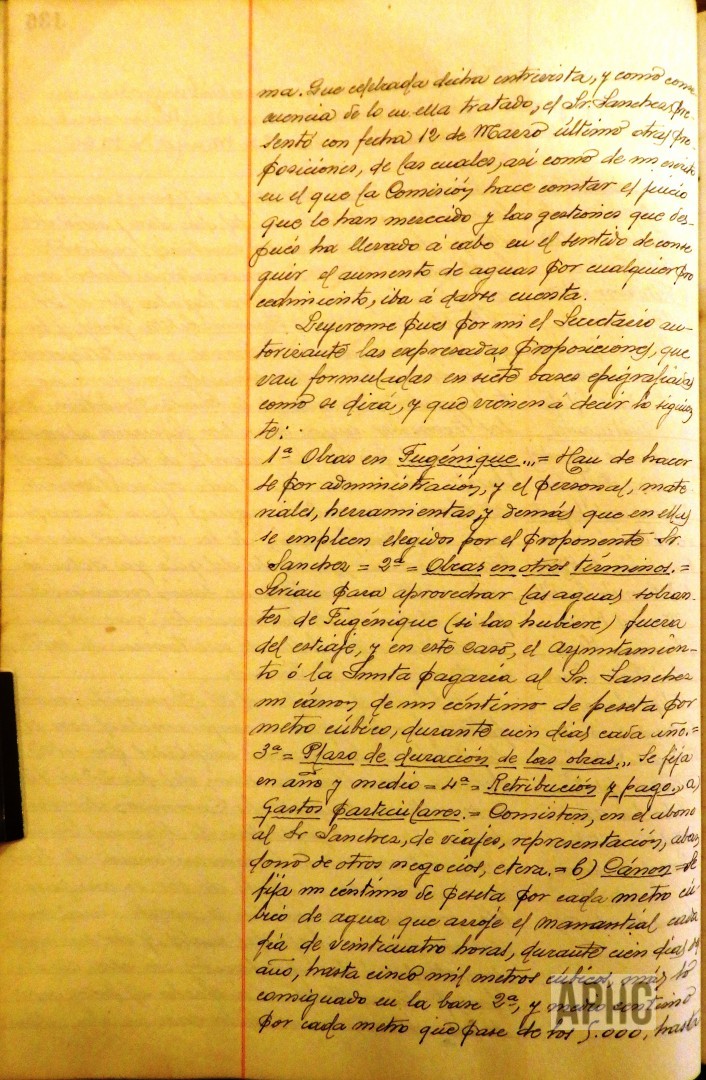 136
ma. Que celebrada dicha entrevista, y como conse
cuencia de lo en ella tratado, el Sr. Sanchez pre-
sentó con fecha 12 de Marzo último otras pro-
posiciones, de las cuales, así como de un escrito
en el que la Comisión hace constar el juicio
que le han merecido y las gestiones que des-
pués ha llevado á cabo en el sentido de conse
guir el aumento de aguas por cualquier pro
cedimiento, iba á darse cuenta.
Leyeronse pues por mi el Secretario au-
torizante las expresadas proposiciones, que
van formuladas en siete bases epigrafiadas
como se dirá, y que vienen á decir lo siguien
te:
1ª Obras en Fugénique.,, = Han de hacer
se por administración, y el personal, mate-
riales, herramientas, y demás que en ellas
se empleen elegidos por el proponente Sr.
Sanchez = 2ª = Obras en otros términos. =
Serían para aprovechar las aguas sobran-
tes de Fugénique (si las hubiere) fuera
del estiaje, y en este caso, el Ayuntamien-
to ó la Junta pagaría al Sr. Sanchez
un cánon de un céntimo de peseta por
metro cúbico, durante cien dias cada año. =
3ª = Plazo de duración de las obras.,, Se fija
en año y medio = 4ª = Retribución y pago.,, a)
Gastos particulares. = Consisten, en el abono
al Sr Sanchez, de viajes, representación, aban
dono de otros negocios, etcra. = b) Cánon = Se
fija un céntimo de peseta por cada metro cú
bico de agua que arroje el manantial cada
día de veinticuatro horas, durante cien días al
año, hasta cinco mil metros cúbicos, más lo
consignado en la base 2ª, y medio centimo
por cada metro que pase de los 5.000, hasta
APHC